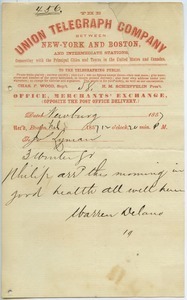 456
THE
UNION TELEGRAPH COMPANY
BETWEEN
NEW-YORK AND BOSTON,
AND INTERMEDIATE STATIONS,
Connecting with the Principal Cities and Towns in the United States and Canadas.
CHAS. F. WOOD, Sup't.
OFFICE, MERCHANTS' EXCHANGE,
(OPPOSITE THE POST OFFICE DELIVERY.)
Dated Newburg 1857
Rec'd, 1857 12 o'clock, 20 min. P M.
To Lyman
3 Winter St
Philip arr this morning in
good health all well here
Warren Delano
19